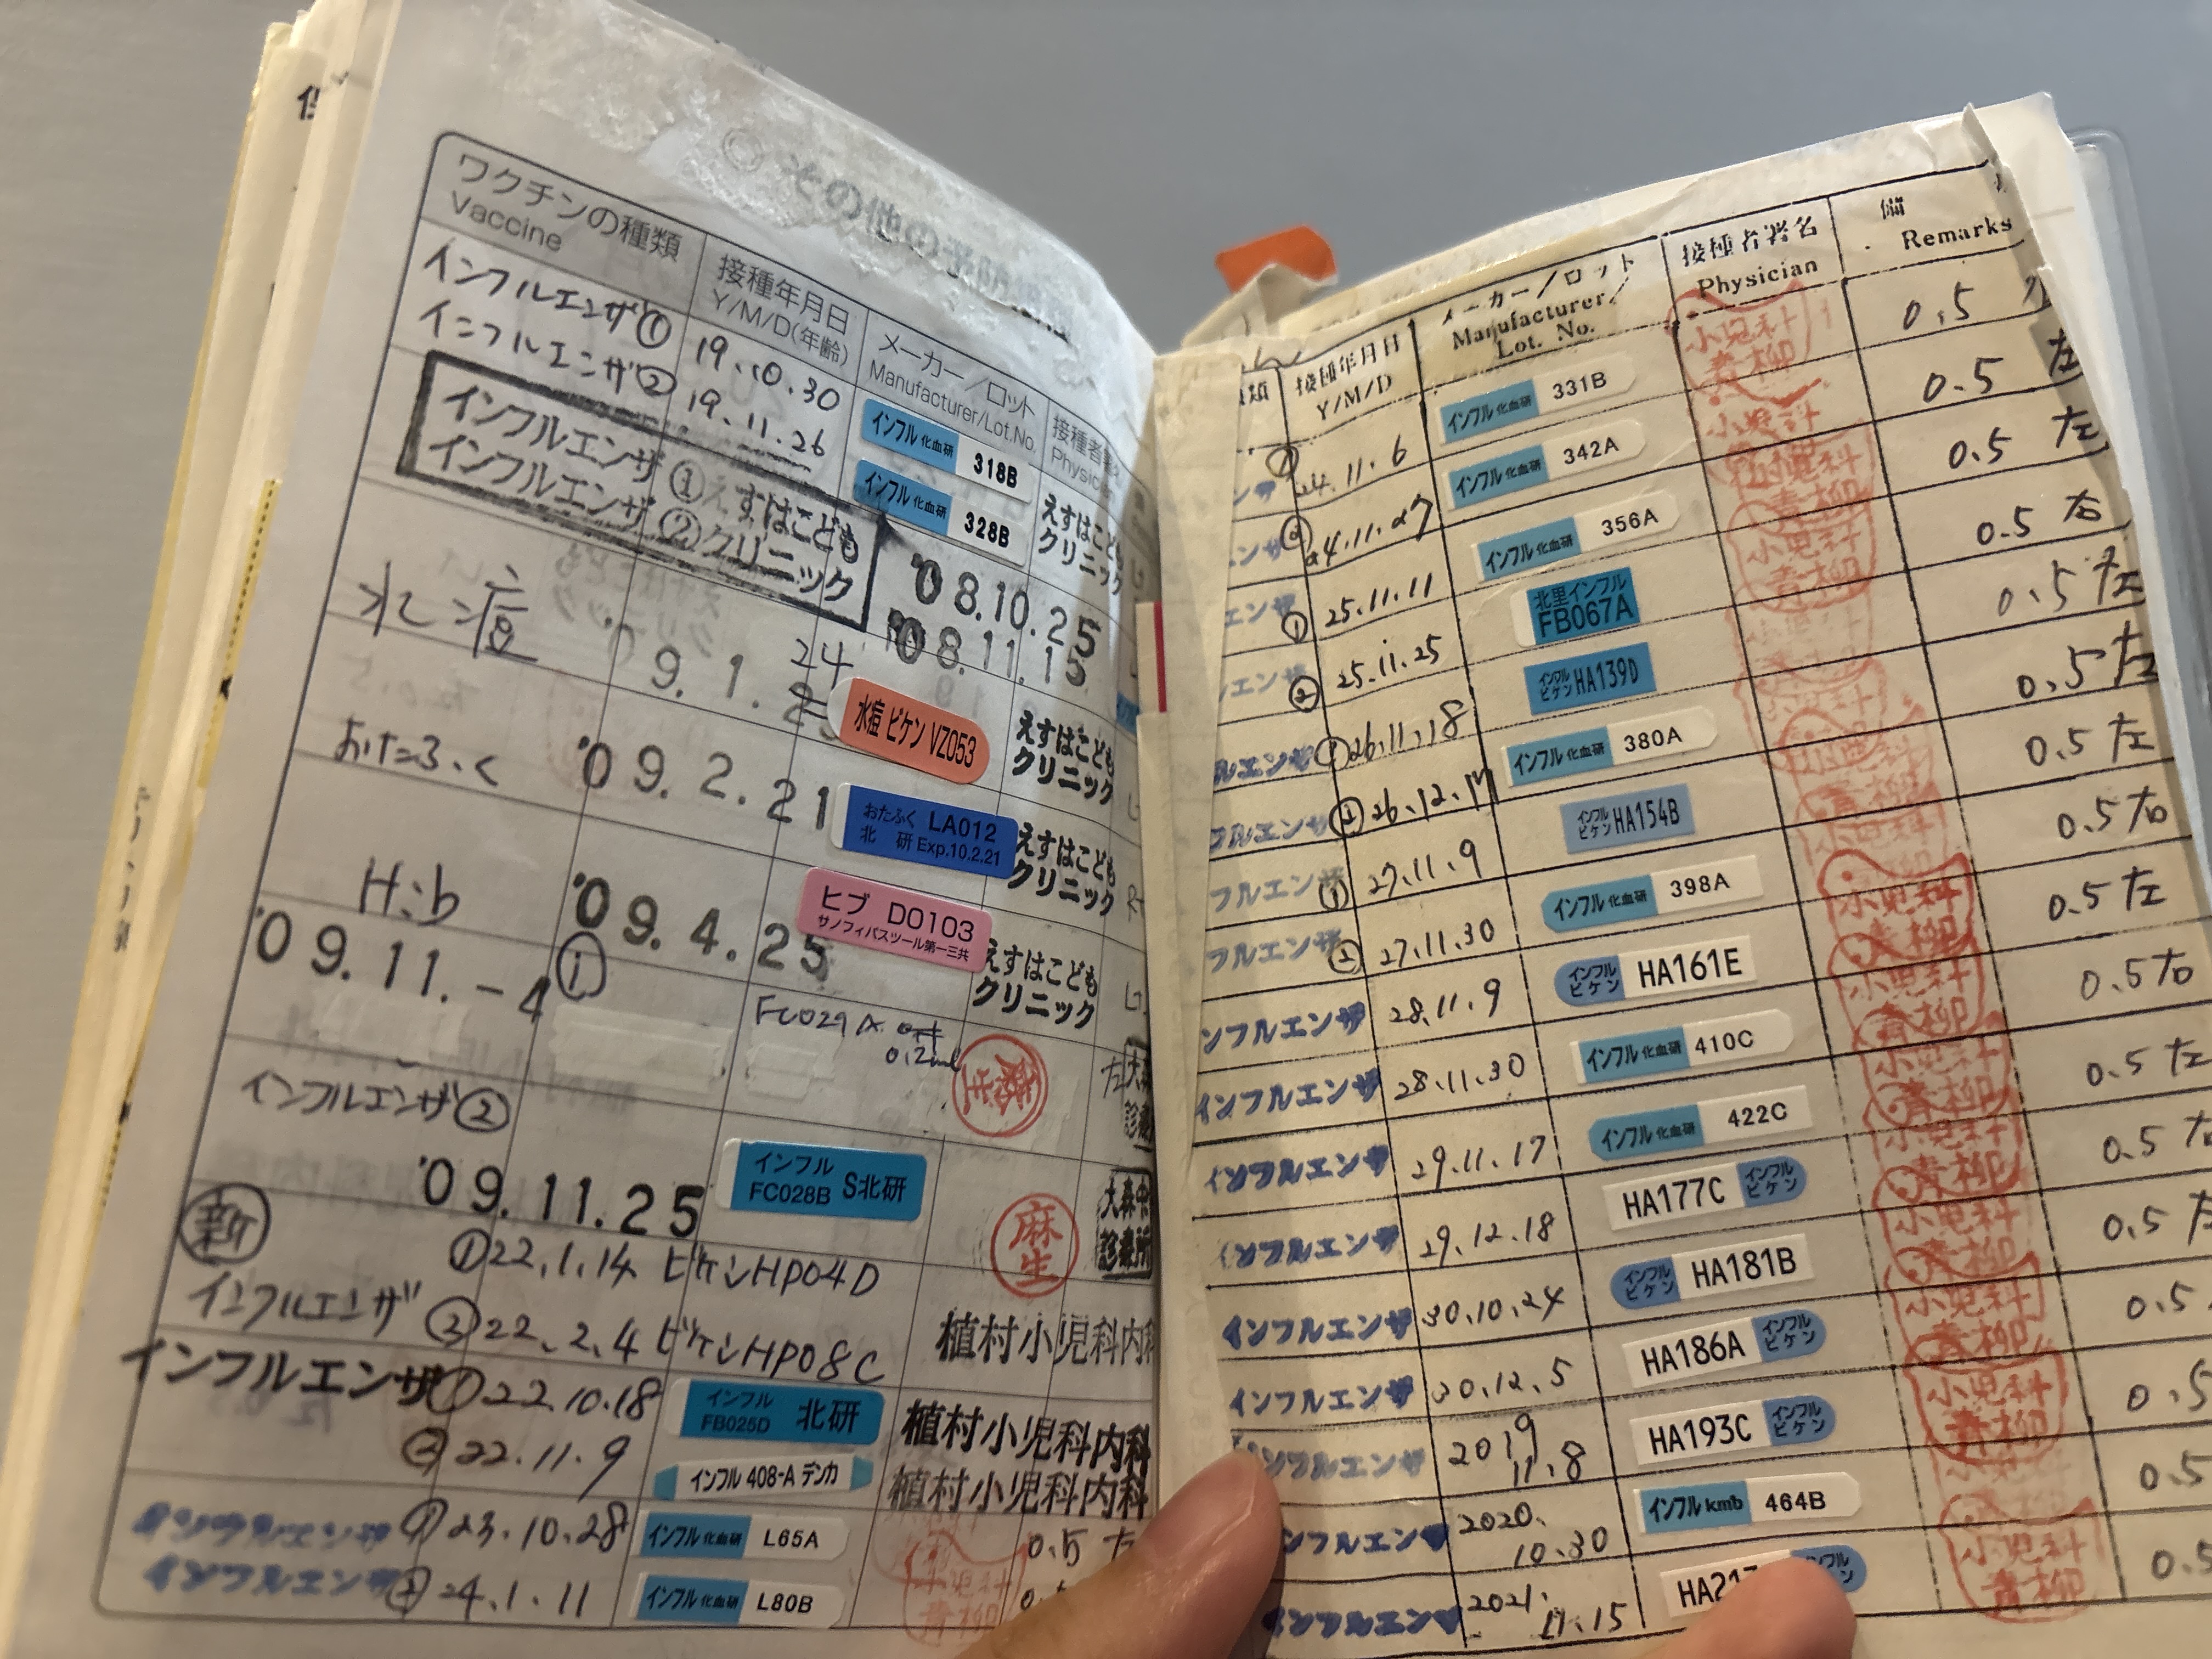 ワクチンの種類
Vaccine
接種年月日
Y/M/D(年齢)
メーカー/ロット
Manufacturer/Lot.No.
インフルエンザ① 19.10.30 インフル 化血研 318B えすはこども クリニック
インフルエンザ② 19.11.26 インフル 化血研 328B
インフルエンザ①えすはこども '08.10.25
インフルエンザ②クリニック '08.11.15
水痘 9.1.24 水痘 ビケン VZ053 えすはこども クリニック
おたふく '09.2.21 おたふく LA012 北 研 Exp.10.2.21 えすはこども クリニック
Hib '09.4.25 ヒブ D0103 サノフィパスツール第一三共 えすはこども クリニック
'09.11.-4 ① FC029A 0.2ml
インフルエンザ②
'09.11.25 インフル FC028B S北研 麻生 診療所
新
インフルエンザ
①22.1.14 ビケンHP04D
②22.2.4 ビケンHP08C 植村小児科内科
インフルエンザ ①22.10.18 インフル FB025D 北研 植村小児科内科
②22.11.9 インフル 408-A デンカ 植村小児科内科
インフルエンザ ①23.10.28 インフル 化血研 L65A 0.5 左
インフルエンザ ②24.1.11 インフル 化血研 L80B 小児科 青柳
接種年月日
Y/M/D
メーカー/ロット
Manufacturer/
Lot. No.
接種者署名
Physician
備
Remarks
① 24.11.6 インフル 化血研 331B 小児科 青柳 0.5
② 24.11.27 インフル 化血研 342A 0.5 左
エンザ ① 25.11.11 インフル 化血研 356A 小児科 青柳 0.5 左
エンザ ② 25.11.25 北里インフル FB067A 小児科 青柳 0.5 右
ルエンザ ① 26.11.18 インフル ビケン HA139D 0.5 左
フルエンザ ② 26.12.17 インフル 化血研 380A 0.5 左
フルエンザ ① 27.11.9 インフル ビケン HA154B 0.5 左
フルエンザ ② 27.11.30 インフル 化血研 398A 0.5 右
ンフルエンザ 28.11.9 インフル ビケン HA161E 小児科 青柳 0.5 左
インフルエンザ 28.11.30 インフル 化血研 410C 小児科 青柳 0.5 右
インフルエンザ 29.11.17 インフル 化血研 422C 小児科 青柳 0.5 左
インフルエンザ 29.12.18 HA177C インフル ビケン 小児科 青柳 0.5 右
インフルエンザ 30.10.24 インフル ビケン HA181B 小児科 青柳 0.5 左
インフルエンザ 30.12.5 HA186A インフル ビケン 小児科 青柳 0.5
インフルエンザ 2019 11.8 HA193C インフル ビケン 小児科 青柳 0.5
ンフルエンザ 2020. 10.30 インフル kmb 464B 0.5
インフルエンザ 2021. 11.15 小児科 青柳 0.5